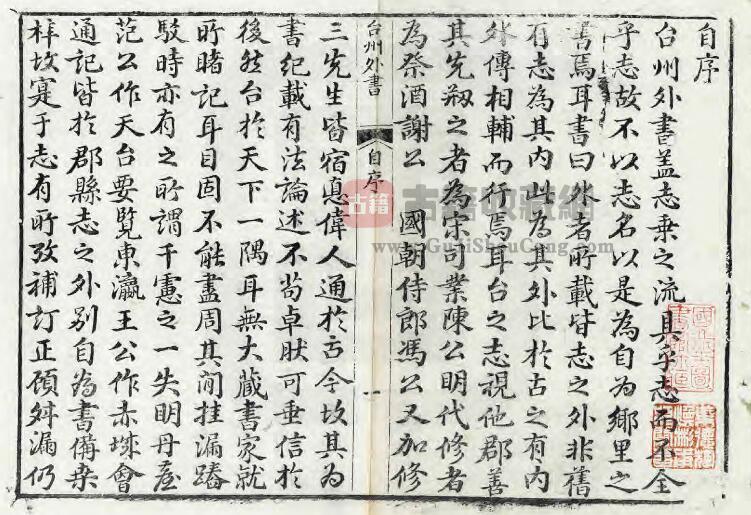 自序
台州外書蓋志乘之流具乎志而不全
乎志故不以志名以是為自為鄉里之
書焉耳書曰外者所載皆志之外非舊
有志為其內此為其外比於古之有內
外傳相輔而行焉耳台之志視他郡善
其先剏之者為宋司業陳公明代修者
為祭酒謝公 國朝侍郎馮公又加修
台州外書
自序
一
三先生皆宿悳偉人通於古今故其為
書紀載有法論述不苟卓肰可垂信於
後然台於天下一隅耳無大藏書家就
所睹記耳目固不能盡周其間挂漏踳
駁時亦有之所謂千慮之一失明丹崖
范公作天台要覽東瀛王公作赤城會
通記皆於郡縣志之外別自為書備桒
梓故寔于志有所攷補訂正頋舛漏仍
古籍
古籍收藏網
www.GujiShouCang.com